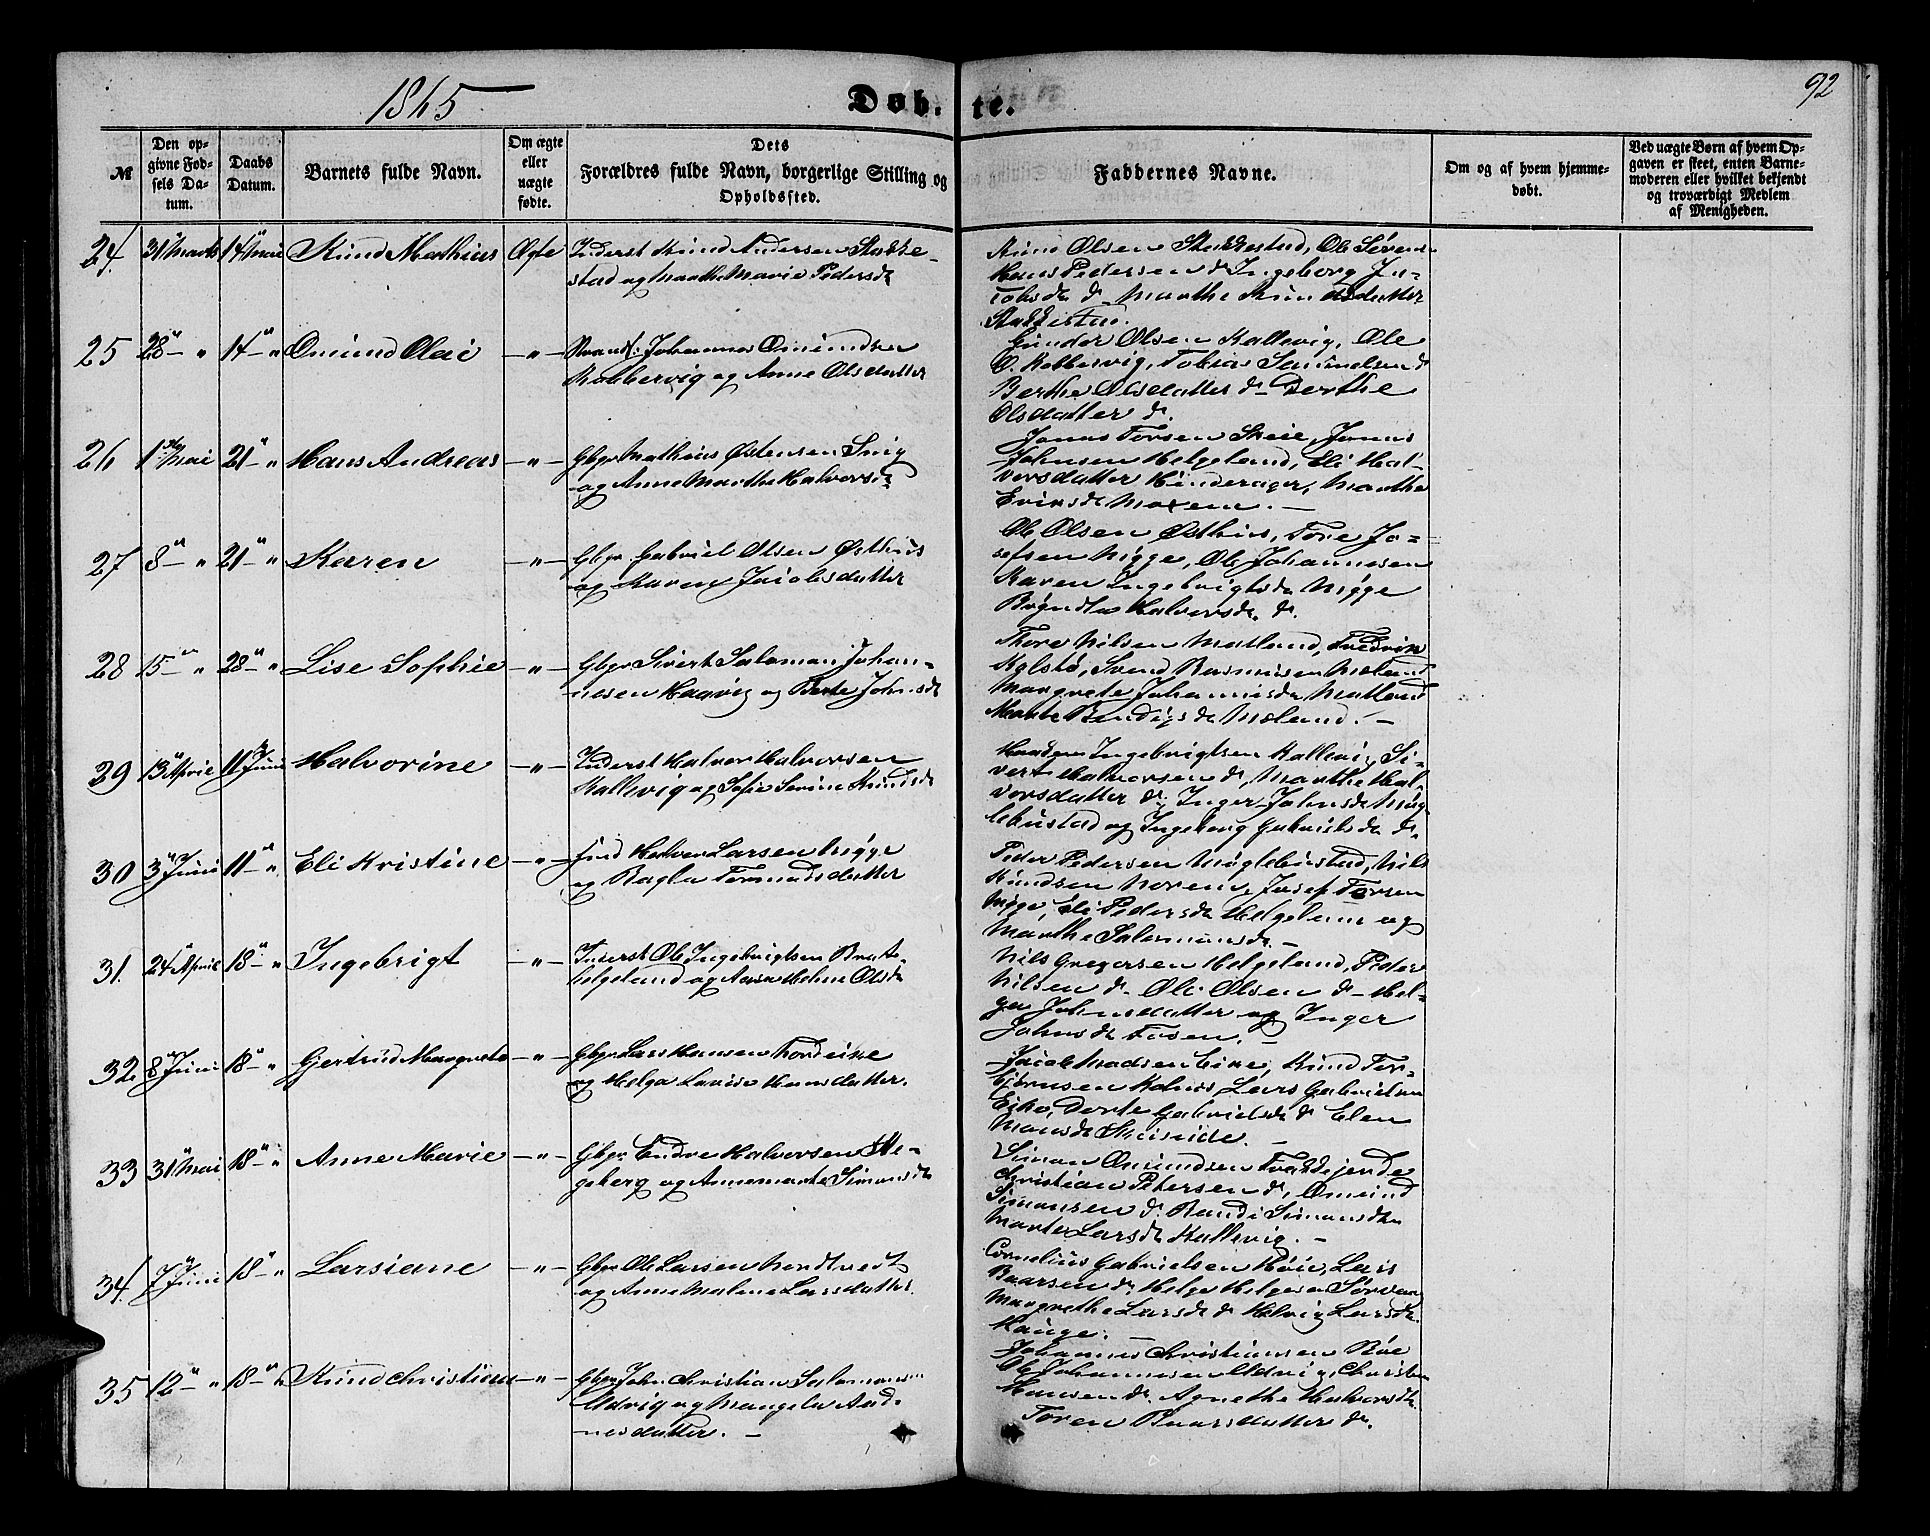 1865
Døb-
te.
92
№
Den op-
givne Fød-
sels Da-
tum.
Daabs
Datum.
Barnets fulde Navn.
Om ægte
eller
uægte
fødte.
Dets
Forældres fulde Navn, borgerlige Stilling og
Opholdssted.
Faddernes Navne.
Om og af hvem hjemme-
døbt.
Ved uægte Børn af hvem Op-
gaven er skeet, enten Barne-
moderen eller hvilket bekjendt
og troværdigt Medlem
af Menigheden.
24. 31 Marts 14 Mai Knud Mathias Ægte Inderst Knud Andersen Stakke-
stad og Marthe Marie Pedersdr
Knud Olsen Stakkestad, Ole Sørens
Hans Pedersen do Ingeborg Ja-
cobsdr do Marthe Knudsdatter
Stakkestad.
25 28 - " 14 - " Omund Olai - " - Strands. Johannes Omundsen
Kobbervig og Anne Olsdatter
Gunder Olsen Kallevig, Ole
O. Kobbervig, Tobias Samuelsen do
Berthe Olsdatter do Dorthe
Olsdatter do.
26 1 Mai 21 - " Hans Andreas - " - Gbgr Mathias Østensen Snig
og Anne Marthe Halvorsdr
Jonas Torsen Skeie, Jonas
Johnsen Helgeland, Eli Hal-
vorsdatter Hinderager, Marthe
Eriksdr Moxem. -
27 8 - " 21 - " Karen - " - Gbgr Gabriel Olsen Østhus
og Karen Jacobsdatter
Ole Olsen Østhus, Tore Jo-
sefsen Nygge, Ole Johannesen
Karen Ingebrigtsdr Nygge
Bryndta Halvorsdr. do.
28 15 - " 28 - " Lise Sophie - " - Gbgr Sivert Salomon Johan-
nesen Haavig og Berte Johnsdr
Thore Nilsen Matland, Fredrik
Kolstø, Svend Rasmusen Mæland
Margrete Johannisdr Matland
Marte Bendigsdr Mæland. -
29 13 April 11 Juni Halvorine - " - Inderst Halvor Halvorsen
Kallevig og Sofie Serine Knudsdr
Ingebrigtsen Kallevig Si-
vert Halvorsen do, Marthe Hal-
vorsdatter do, Inger Johnsdr Myg-
lebustad og Ingeborg Gabrielsdr do.
30 3 Juni 11 - " Eli Kristine - " - Ind Halvor Larsen Nygge
og Ragla Tormundsdatter
Peder Pedersen Myglebustad, Nils
Knudsen Noren, Josef Torsen
Nygge, Eli Pedersdr Helgeland og
Marthe Salomonsdr. -
31. 24 April 18 - " Ingebrigt - " - Inderst Ole Ingebrigtsen Brate-
helgeland og Anna Helene Olsdr
Nils Gregersen Helgeland, Peder
Nilsen do - Ole Olsen do - Hel-
ga Johnsdatter og Inger
Johnsdr Fosen. -
32. 8 Juni 18 - " Gjertrud Margrete - " - Gbgr Lars Hansen Nordeike
og Helga Lavise Hansdatter.
Jacob Madsen Eike, Knud Tor-
bjørnsen Kolnes, Lars Gabrielsen
Eike, Dorte Gabrielsdr do Elen
Monsdr Skeiseide. -
33 31 Mai 18 - " Anne Marie - " - Gbgr Endre Halvorsen He-
geberg og Anne Marte Simonsdr
Simon Omundsen Frakkejorde
Christian Petersen do, Omund
Simonsen do. Randi Simonsdr
Marte Larsdr Kallevig. -
34. 7 Juni 18 - " Larsiane - " - Gbgr Ole Larsen Nordtvedt
og Anne Malene Larsdatter.
Cornelius Gabrielsen Høie, Lars
Baarsen do, Helge Helgesen Sørvaag
Margrethe Larsdr do Helvig Larsdr
Hauge. -
35 12 - " 18 - " Knud Christian - " - Gbgr John Christian Salomons
Udvig og Mangela And-
nesdatter. -
Johannes Christiansen Røe
Ole Johannesen Udvig, Christen
Hansen do Agnethe Halvorsdr
Toren Baarsdatter do.